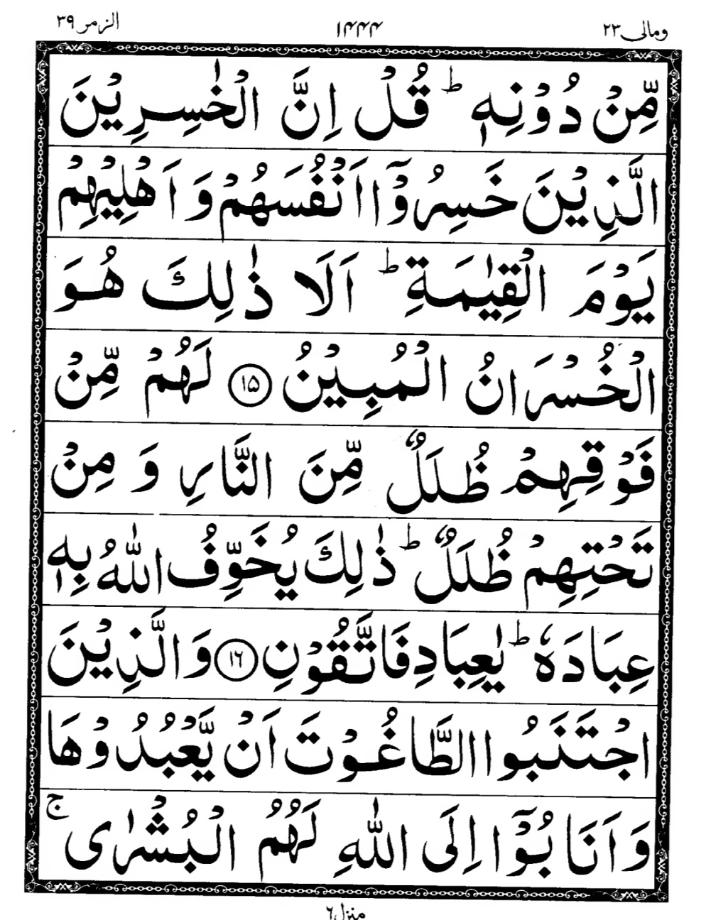 ومالی ۲۳ ۱۴۴۴ الزمر ۳۹
مِّنْ دُوْنِهٖ ؕ قُلْ اِنَّ الْخٰسِرِيْنَ
الَّذِيْنَ خَسِرُوْۤا اَنْفُسَهُمْ وَ اَهْلِيْهِمْ
يَوْمَ الْقِيٰمَةِ ؕ اَلَا ذٰلِكَ هُوَ
الْخُسْرَانُ الْمُبِيْنُ ۱۵ لَهُمْ مِّنْ
فَوْقِهِمْ ظُلَلٌ مِّنَ النَّارِ وَ مِنْ
تَحْتِهِمْ ظُلَلٌ ؕ ذٰلِكَ يُخَوِّفُ اللّٰهُ بِهٖ
عِبَادَهٗ ؕ يٰعِبَادِ فَاتَّقُوْنِ ۱۶ وَ الَّذِيْنَ
اجْتَنَبُوا الطَّاغُوْتَ اَنْ يَّعْبُدُوْهَا
وَ اَنَابُوْۤا اِلَى اللّٰهِ لَهُمُ الْبُشْرٰى ۚ
منزل ۶